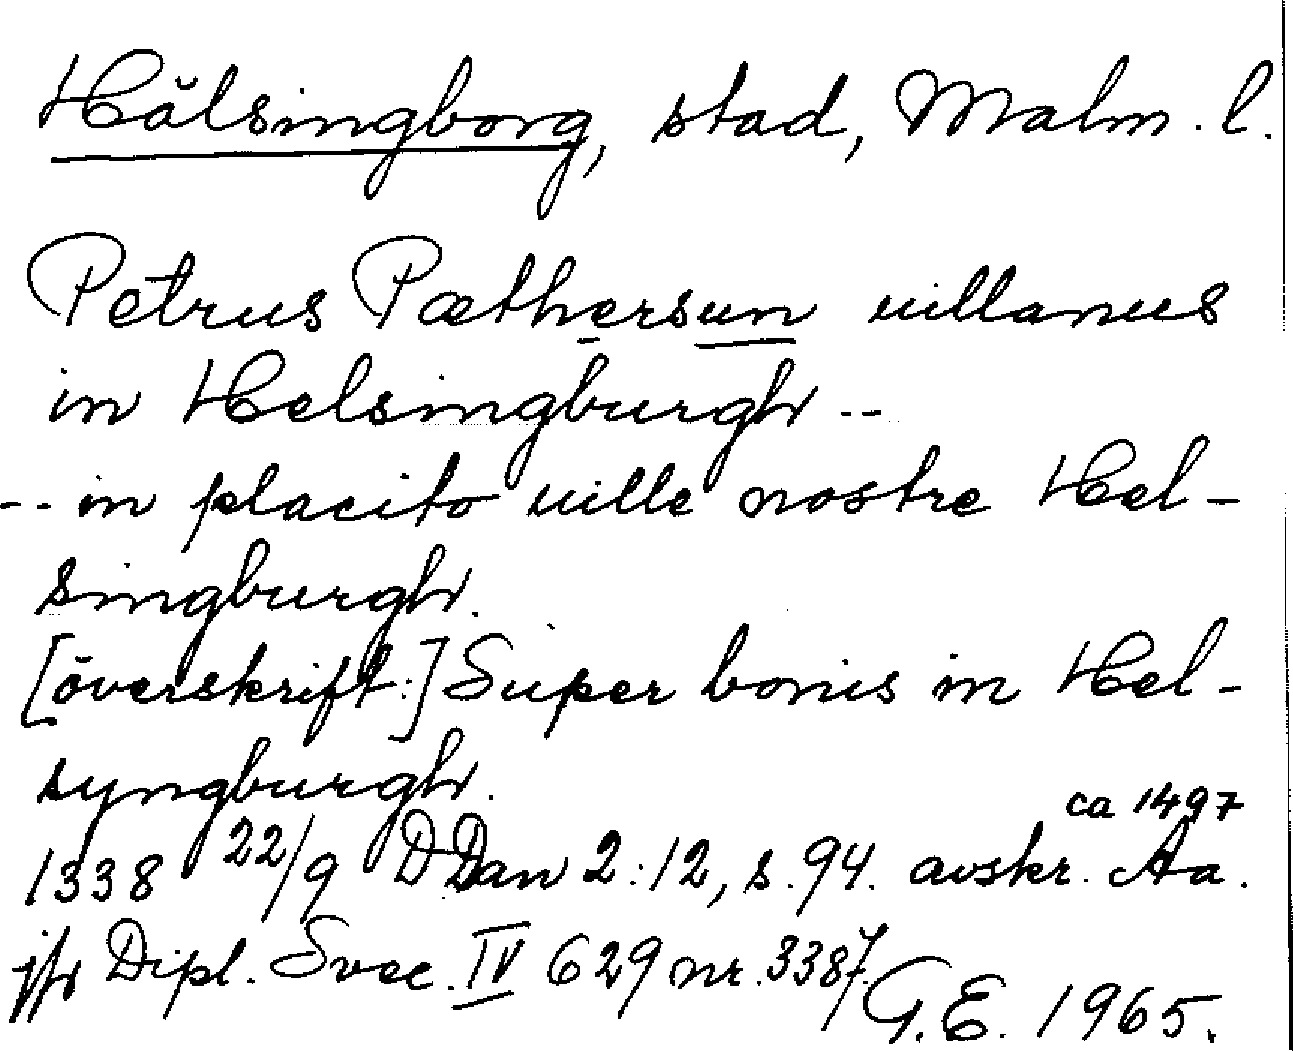 Hälsingborg, stad, Malm. l.
Petrus Pæthersun uillanus
in Helsingburgh --
-- in placito uille nostre Hel-
singburgh.
[överskift:] Super bonis in Hel-
syngburgh.
ca 1497
1338 22/9 DDan 2:12, s. 94. avskr. Aa.
jfr Dipl. Svec. IV 629 nr. 3387.
G.E. 1965.